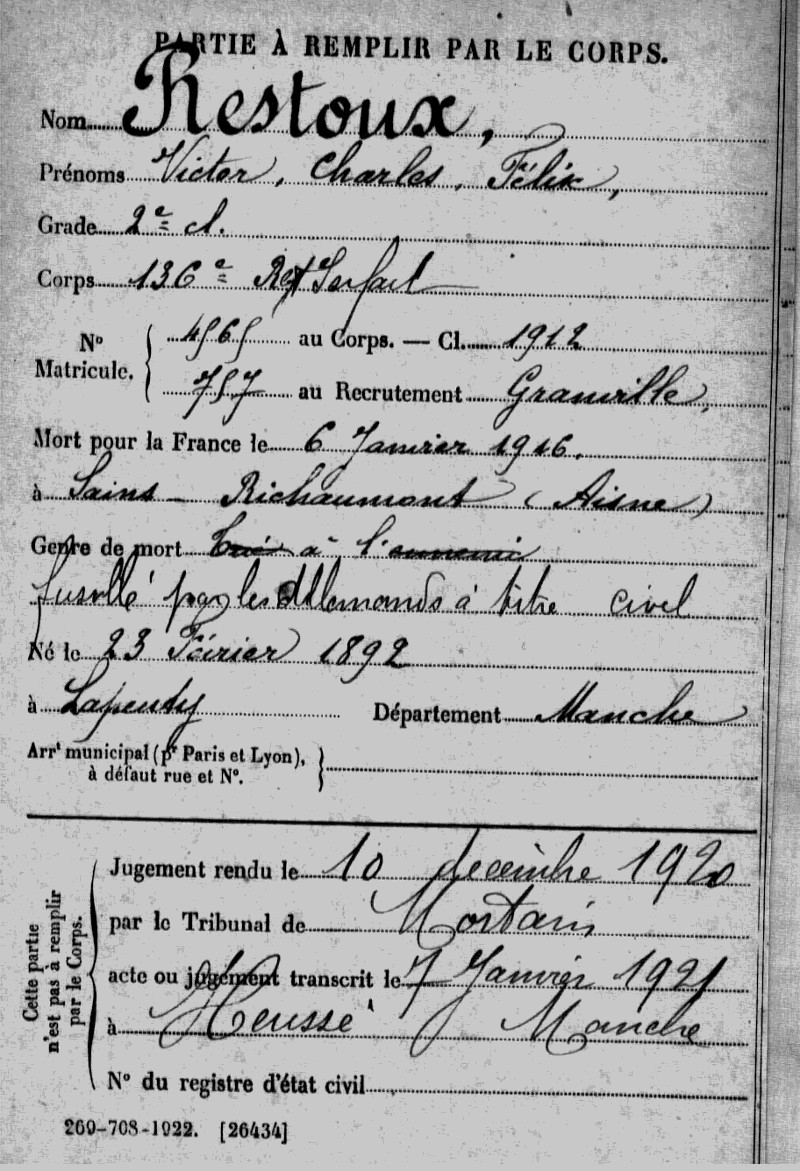 PARTIE À REMPLIR PAR LE CORPS.
Nom Restoux,
Prénoms Victor, Charles, Félix,
Grade 2e cl.
Corps 136e Regt
No Matricule. 4565 au Corps. — Cl. 1912
757 au Recrutement Granville,
Mort pour la France le 6 Janvier 1916.
à Sains - Richaumont (Aisne)
Genre de mort Tué à l'ennemi
fusillé par les Allemands à titre civil
Né le 23 Février 1892
à Lapenty Département Manche
Arrt municipal (pr Paris et Lyon),
à défaut rue et No.
Cette partie n'est pas à remplir par le Corps.
Jugement rendu le 10 decembre 1920
par le Tribunal de Mortain
acte ou jugement transcrit le 7 Janvier 1921
à Heussé Manche
No du registre d'état civil
269-708-1922. [26434]